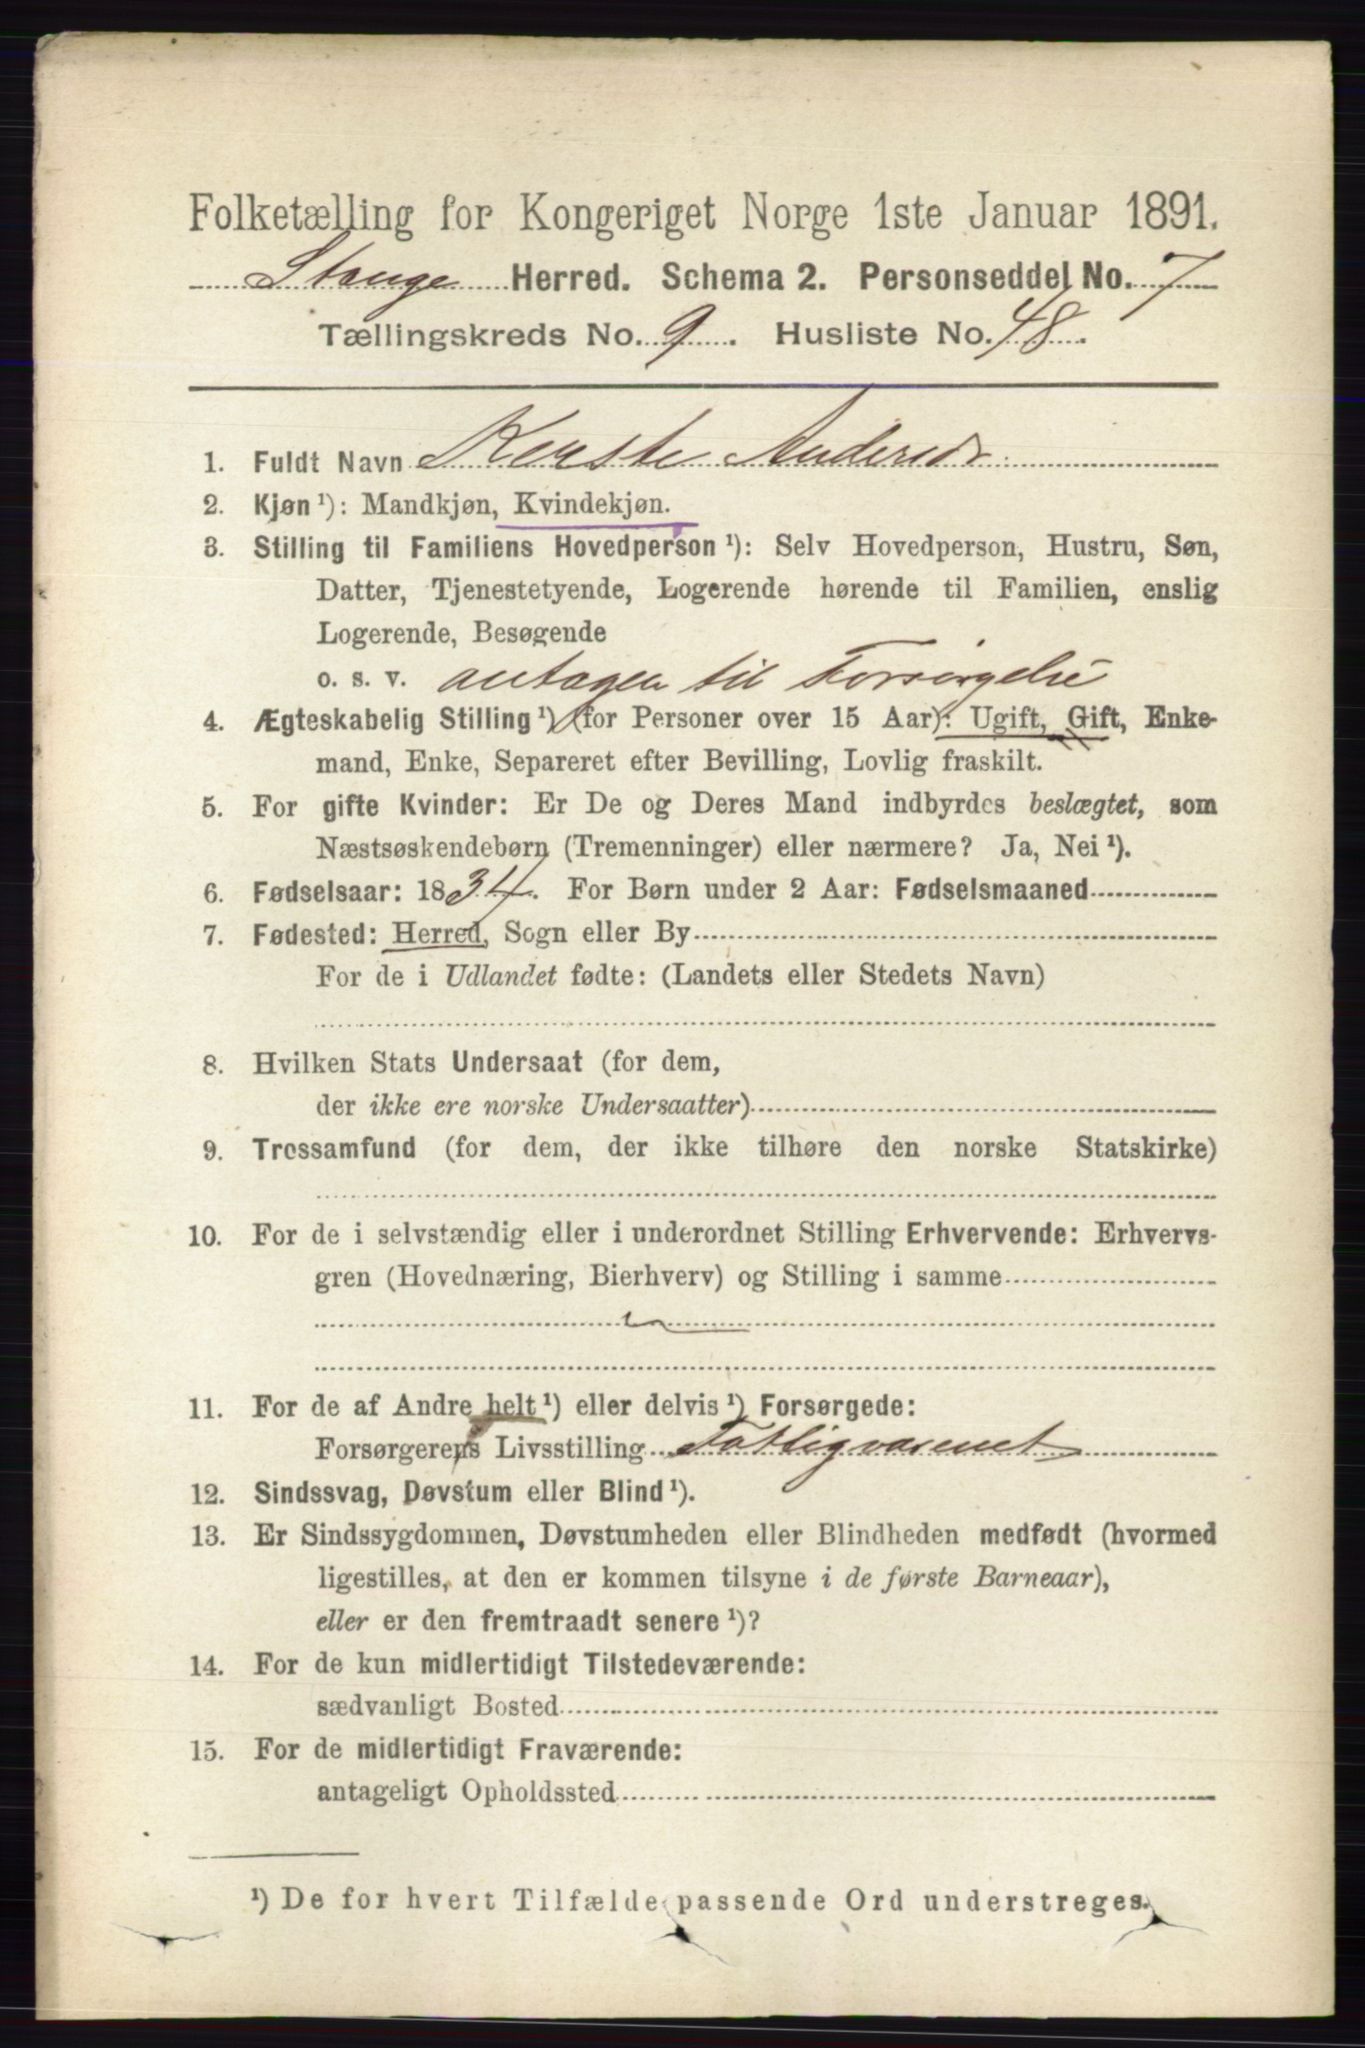 Folketælling for Kongeriget Norge 1ste Januar 1891.
Stange Herred. Schema 2. Personseddel No. 7
Tællingskreds No. 9. Husliste No. 48.
1. Fuldt Navn Kerste Andersdr
2. Kjøn ¹): Mandkjøn, Kvindekjøn.
3. Stilling til Familiens Hovedperson ¹): Selv Hovedperson, Hustru, Søn,
Datter, Tjenestetyende, Logerende hørende til Familien, enslig
Logerende, Besøgende
o. s. v. antagen til Forsørgelse
4. Ægteskabelig Stilling ¹) (for Personer over 15 Aar): Ugift, Gift, Enke-
mand, Enke, Separeret efter Bevilling, Lovlig fraskilt.
5. For gifte Kvinder: Er De og Deres Mand indbyrdes beslægtet, som
Næstsøskendebørn (Tremenninger) eller nærmere? Ja, Nei ¹).
6. Fødselsaar: 1834. For Børn under 2 Aar: Fødselsmaaned
7. Fødested: Herred, Sogn eller By
For de i Udlandet fødte: (Landets eller Stedets Navn)
8. Hvilken Stats Undersaat (for dem,
der ikke ere norske Undersaatter)
9. Trossamfund (for dem, der ikke tilhøre den norske Statskirke)
10. For de i selvstændig eller i underordnet Stilling Erhvervende: Erhvervs-
gren (Hovednæring, Bierhverv) og Stilling i samme
11. For de af Andre helt ¹) eller delvis ¹) Forsørgede:
Forsørgerens Livsstilling Fattigvæsenet
12. Sindssvag, Døvstum eller Blind ¹).
13. Er Sindssygdommen, Døvstumheden eller Blindheden medfødt (hvormed
ligestilles, at den er kommen tilsyne i de første Barneaar),
eller er den fremtraadt senere ¹)?
14. For de kun midlertidigt Tilstedeværende:
sædvanligt Bosted
15. For de midlertidigt Fraværende:
antageligt Opholdssted
¹) De for hvert Tilfælde passende Ord understreges.